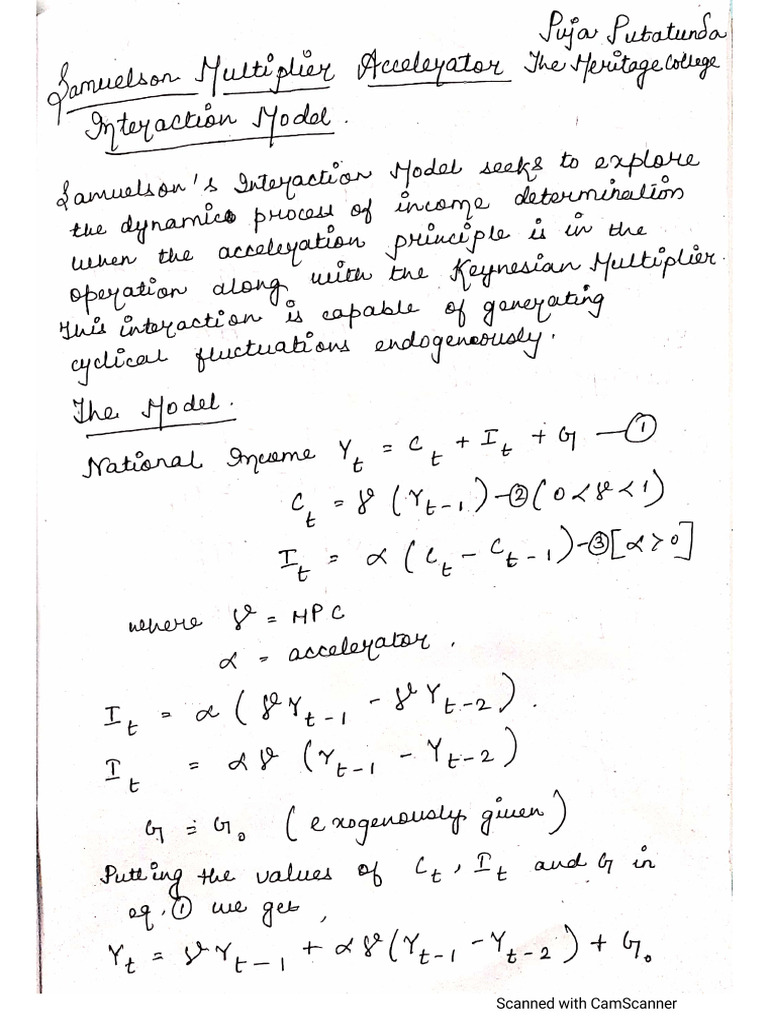 Puja Putatunda
Samuelson Multiplier Accelerator The Heritage College
Interaction Model.
Samuelson's Interaction Model seeks to explore
the dynamics process of income determination
when the acceleration principle is in the
operation along with the Keynesian Multiplier.
This interaction is capable of generating
cyclical fluctuations endogeneously.
The Model.
National Income Y_t = C_t + I_t + G — ①
C_t = γ (Y_{t-1}) - ② (0 < γ < 1)
I_t = α (C_t - C_{t-1}) - ③ [α > 0]
where γ = MPC
α = accelerator.
I_t = α (γ Y_{t-1} - γ Y_{t-2}).
I_t = αγ (Y_{t-1} - Y_{t-2})
G = G_0 (exogenously given)
Putting the values of C_t, I_t and G in
eq. ① we get,
Y_t = γ Y_{t-1} + αγ (Y_{t-1} - Y_{t-2}) + G_0
Scanned with CamScanner